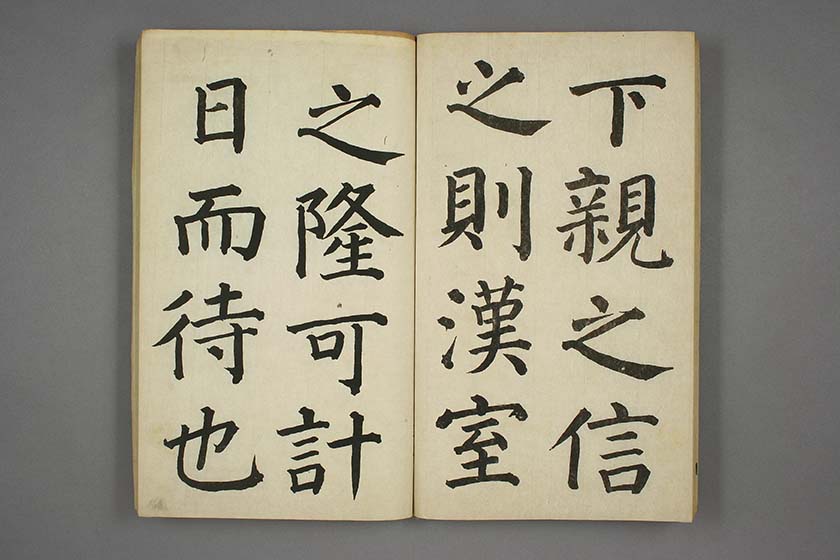 下親之信
之則漢室
之隆可計
日而待也